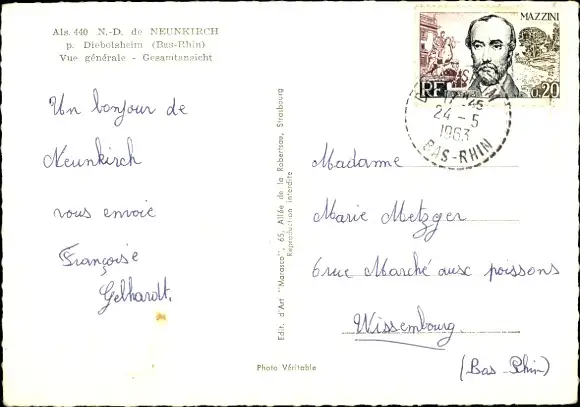 Als. 440 N.-D. de NEUNKIRCH
p. Diebolsheim (Bas-Rhin)
Vue générale - Gesamtansicht
Un bonjour de
Neunkirch
vous envoie
Françoise
Gelhardt.
Edit. d'Art "Marasco", 65, Allée de la Robertsau, Strasbourg
Reproduction interdite
Photo Véritable
MAZZINI
RF
0,20
17-45
24-5
1963
BAS-RHIN
Madame
Marie Metzger
6 rue Marché aux poissons
Wissembourg.
(Bas Rhin)